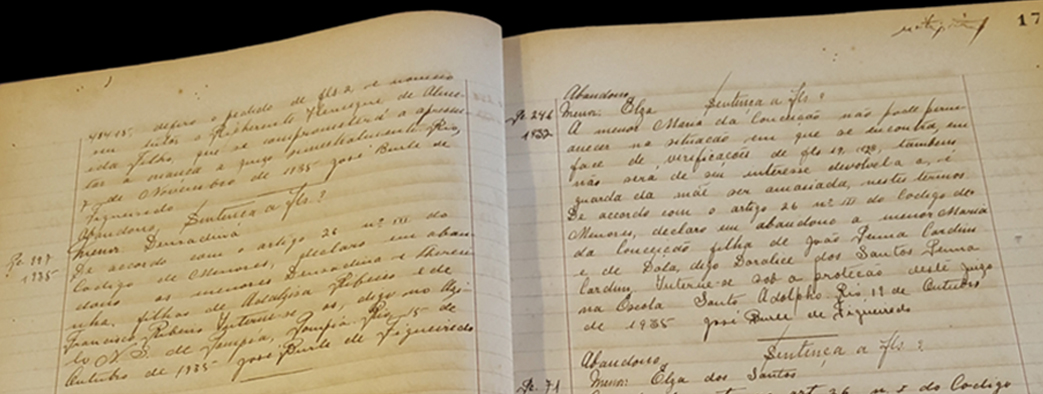 defiro o pedido de fls 2, e nomeio
seu tutor o Henrique de Almei-
da Filho, que se comprometterá a apresen-
tar a menor a juizo Rio,
7 de Novembro de 1935 José Burle de
Figueiredo
Abandono Sentença a fls ?
Menor: Deuradina
1935
De accordo com o artigo 26 nº III do
Codigo de Menores, declaro em aban
dono as menores Deuradina e
nha, filhas de Adalgisa Rubens e de
Francisco Rubens Interne-se as, digo no Azi-
lo N. S. de Pompéa, Rio, 15 de
Outubro de 1935 José Burle de Figueiredo
17
Abandono
Menor: Elza Sentença a fls ?
Pr. 246
1932
A menor Maria da Conceição não pode perma
necer na situação em que se encontra, em
face de verificações de fls 19, tambem
não será de seu interesse devolvel a, á
guarda da mãe ser amasiada, nestes termos
De accordo com o artigo 26 nº III do Codigo de
Menores, declaro em abandono a menor Maria
da Conceição filha de João Penna Cardim
e de Dola, digo Doralice dos Santos Penna
Cardim, Interne-se sob a protecão deste juizo
na Escola Santo Adolpho Rio, 19 de Outubro
de 1935 José Burle de Figueiredo
Abandono Sentença a fls ?
Pr. 71
Menor: Elza dos Santos
art 26 n. do Codigo